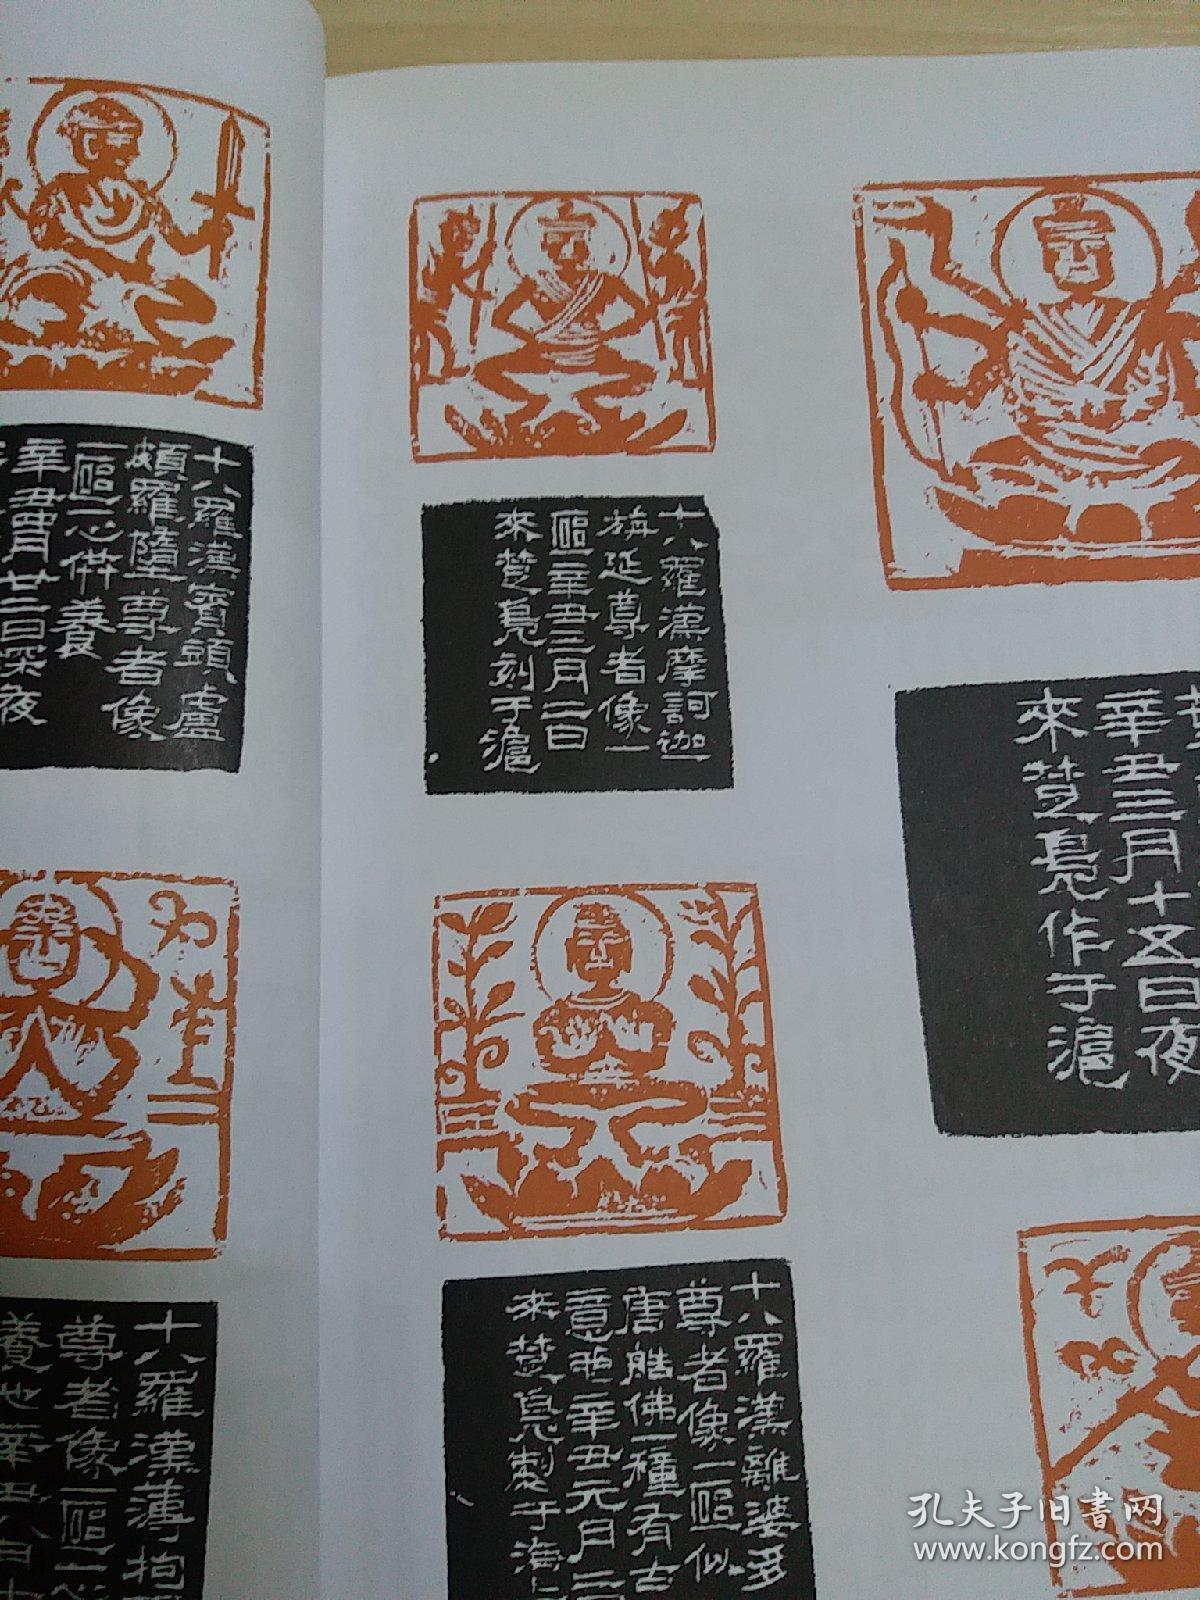 十八羅漢賓頭盧
頗羅墮尊者像
一區一心供養
辛丑二月廿三日深夜
十八羅漢摩訶迦
旃延尊者像一
區辛丑三月二日
來楚鳧刻于滬
辛丑三月十五日夜
來楚鳧作于滬
十八羅漢薄拘
尊者像一區
十八羅漢離婆多
尊者像一區似
唐雕佛一種有古
意也辛丑元月二
來楚鳧製于海上
孔夫子旧书网
www.kongfz.com